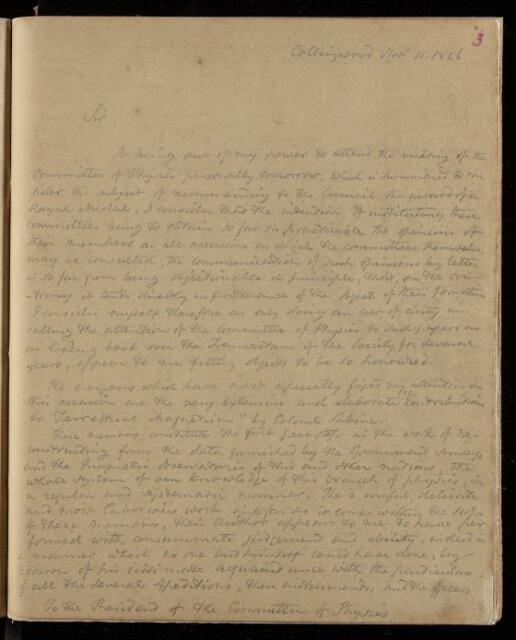 3
Collingwood Nov. 11. 1846
Sir
It being out of my power to attend the meeting of the
Committee of Physics personally tomorrow, which is summoned to con
sider the subject of recommending to the Council the award of a
Royal Medal, I consider that the intention of instituting these
committees being to obtain so far as practicable the opinions of
their members on all occasions on which the committees themselves
may be consulted, the communication of such opinions by letter
is so far from being objectionable in principle, that, on the con-
-trary it tends directly in furtherance of the objects of their formation
I consider myself therefore as only doing an act of duty in
calling the attention of the committee of Physics to such papers as
on looking back over the Transactions of the Society for several
years, appear to me fitting objects to be so honoured.
The memoirs which have most especially fixed my attention on
this occasion are the very extensive and elaborate "Contributions
to Terrestrial Magnetism" by Colonel Sabine.
These memoirs constitute the first great step in the work of re-
constructing from the data furnished by the Government Surveys
and the Magnetic observatories of this and other nations, the
whole system of our knowledge of this branch of physics, in
a regular and systematic manner. This careful, delicate
and most laborious work so far as it comes within the scope
of these memoirs, their author appears to me to have per
formed with consummate judgement and ability, indeed in
a manner which no one but himself could have done, by
reason of his intimate acquaintance with the particulars
of all the several expeditions, their instruments, and the
To the President of the Committee of Physics